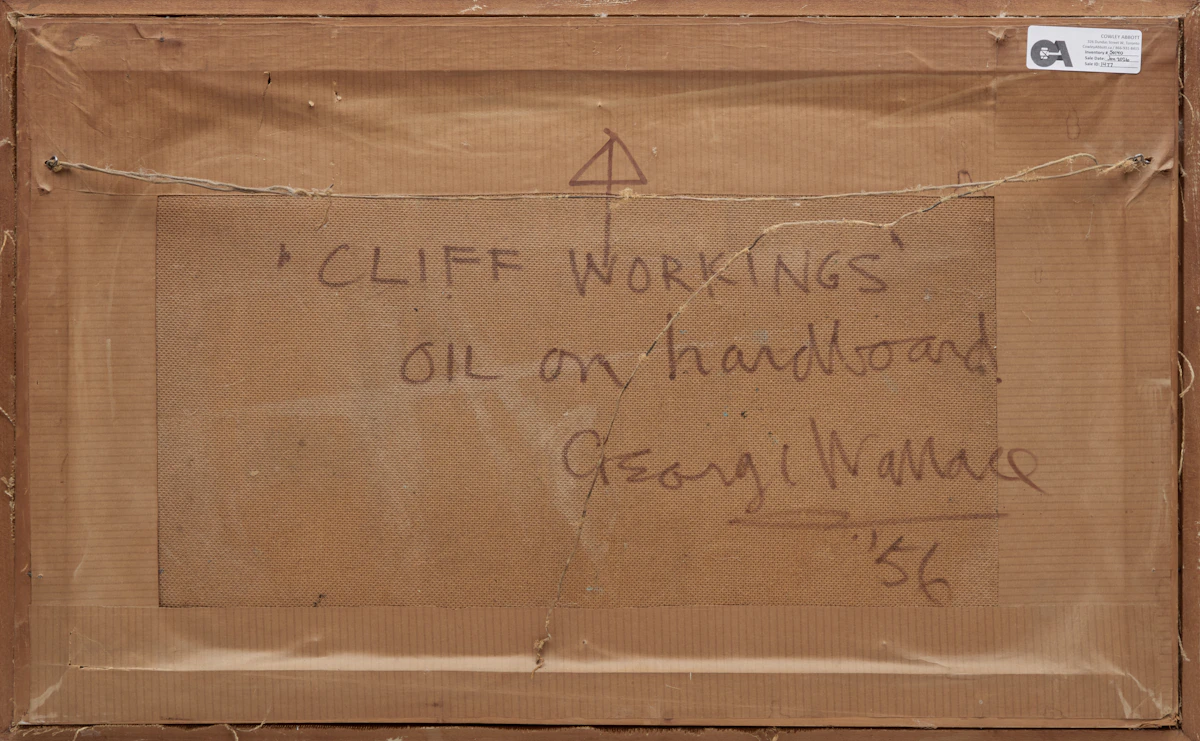 COWLEY ABBOTT
Inventory #
Sale Date:
Sale ID:
'CLIFF WORKINGS'
OIL on hardboard.
George Wallace
'56